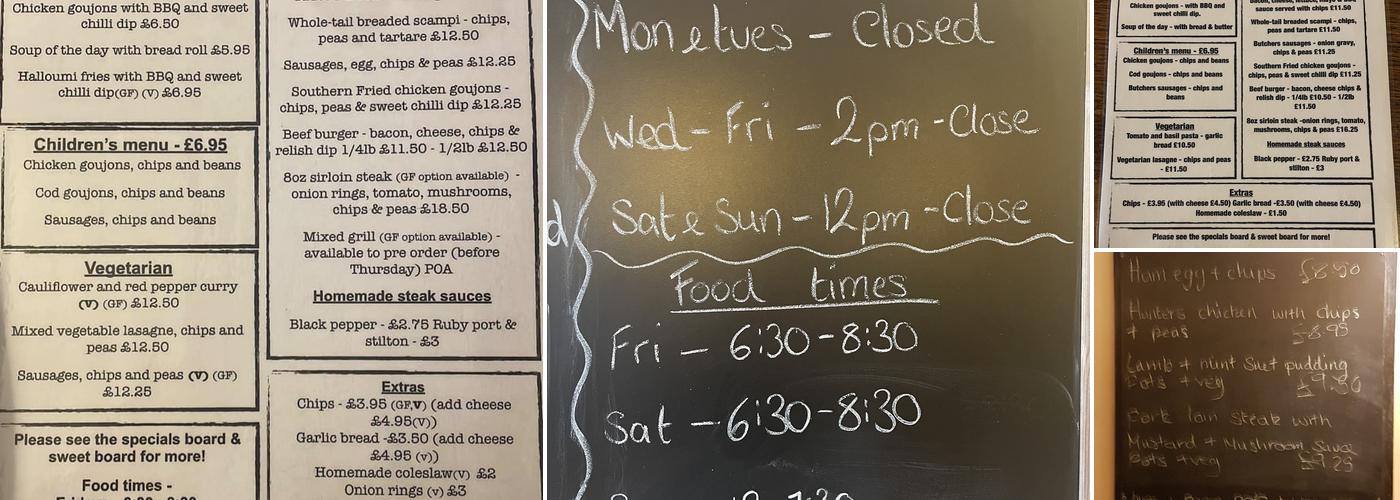 Chicken goujons with BBQ and sweet
chilli dip £6.50
Soup of the day with bread roll £5.95
Halloumi fries with BBQ and sweet
chilli dip(GF) (V) £6.95
Children's menu - £6.95
Chicken goujons, chips and beans
Cod goujons, chips and beans
Sausages, chips and beans
Vegetarian
Cauliflower and red pepper curry
(V) (GF) £12.50
Mixed vegetable lasagne, chips and
peas £12.50
Sausages, chips and peas (V) (GF)
£12.25
Please see the specials board &
sweet board for more!
Food times -
Whole-tail breaded scampi - chips,
peas and tartare £12.50
Sausages, egg, chips & peas £12.25
Southern Fried chicken goujons -
chips, peas & sweet chilli dip £12.25
Beef burger - bacon, cheese, chips &
relish dip 1/4lb £11.50 - 1/2lb £12.50
8oz sirloin steak (GF option available) -
onion rings, tomato, mushrooms,
chips & peas £18.50
Mixed grill (GF option available) -
available to pre order (before
Thursday) POA
Homemade steak sauces
Black pepper - £2.75 Ruby port &
stilton - £3
Extras
Chips - £3.95 (GF,V) (add cheese
£4.95(v))
Garlic bread -£3.50 (add cheese
£4.95 (v))
Homemade coleslaw(v) £2
Onion rings (v) £3
Mon & tues - Closed
Wed - Fri - 2pm - Close
Sat & Sun - 12pm - Close
Food times
Fri - 6:30-8:30
Sat - 6:30-8:30
Chicken goujons - with BBQ and
sweet chilli dip.
Soup of the day - with bread & butter
Children's menu - £6.95
Chicken goujons - chips and beans
Cod goujons - chips and beans
Butchers sausages - chips and
beans
Vegetarian
Tomato and basil pasta - garlic
bread £10.50
Vegetarian lasagne - chips and peas
- £11.50
sauce served with chips £11.50
Whole-tail breaded scampi - chips,
peas and tartare £11.50
Butchers sausages - onion gravy,
chips & peas £11.25
Southern Fried chicken goujons -
chips, peas & sweet chilli dip £11.25
Beef burger - bacon, cheese chips &
relish dip - 1/4lb £10.50 - 1/2lb
£11.50
8oz sirloin steak -onion rings, tomato,
mushrooms, chips & peas £16.25
Homemade steak sauces
Black pepper - £2.75 Ruby port &
stilton - £3
Extras
Chips - £3.95 (with cheese £4.50) Garlic bread -£3.50 (with cheese £4.50)
Homemade coleslaw - £1.50
Please see the specials board & sweet board for more!
Ham egg + chips £8.50
Hunters chicken with chips
+ peas £8.95
Lamb + mint Suet pudding
Pots + veg
Pork loin steak with
Mustard + Mushroom Sauce
Pots + veg £9.25